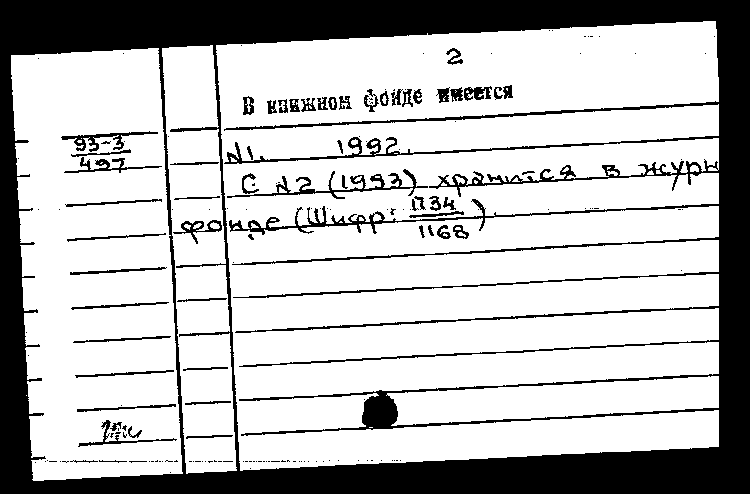 2
В книжном фонде имеется
93-3
497
N1. 1992.
С N2 (1993) хранится в журн
фонде (Шифр: П34
1168).